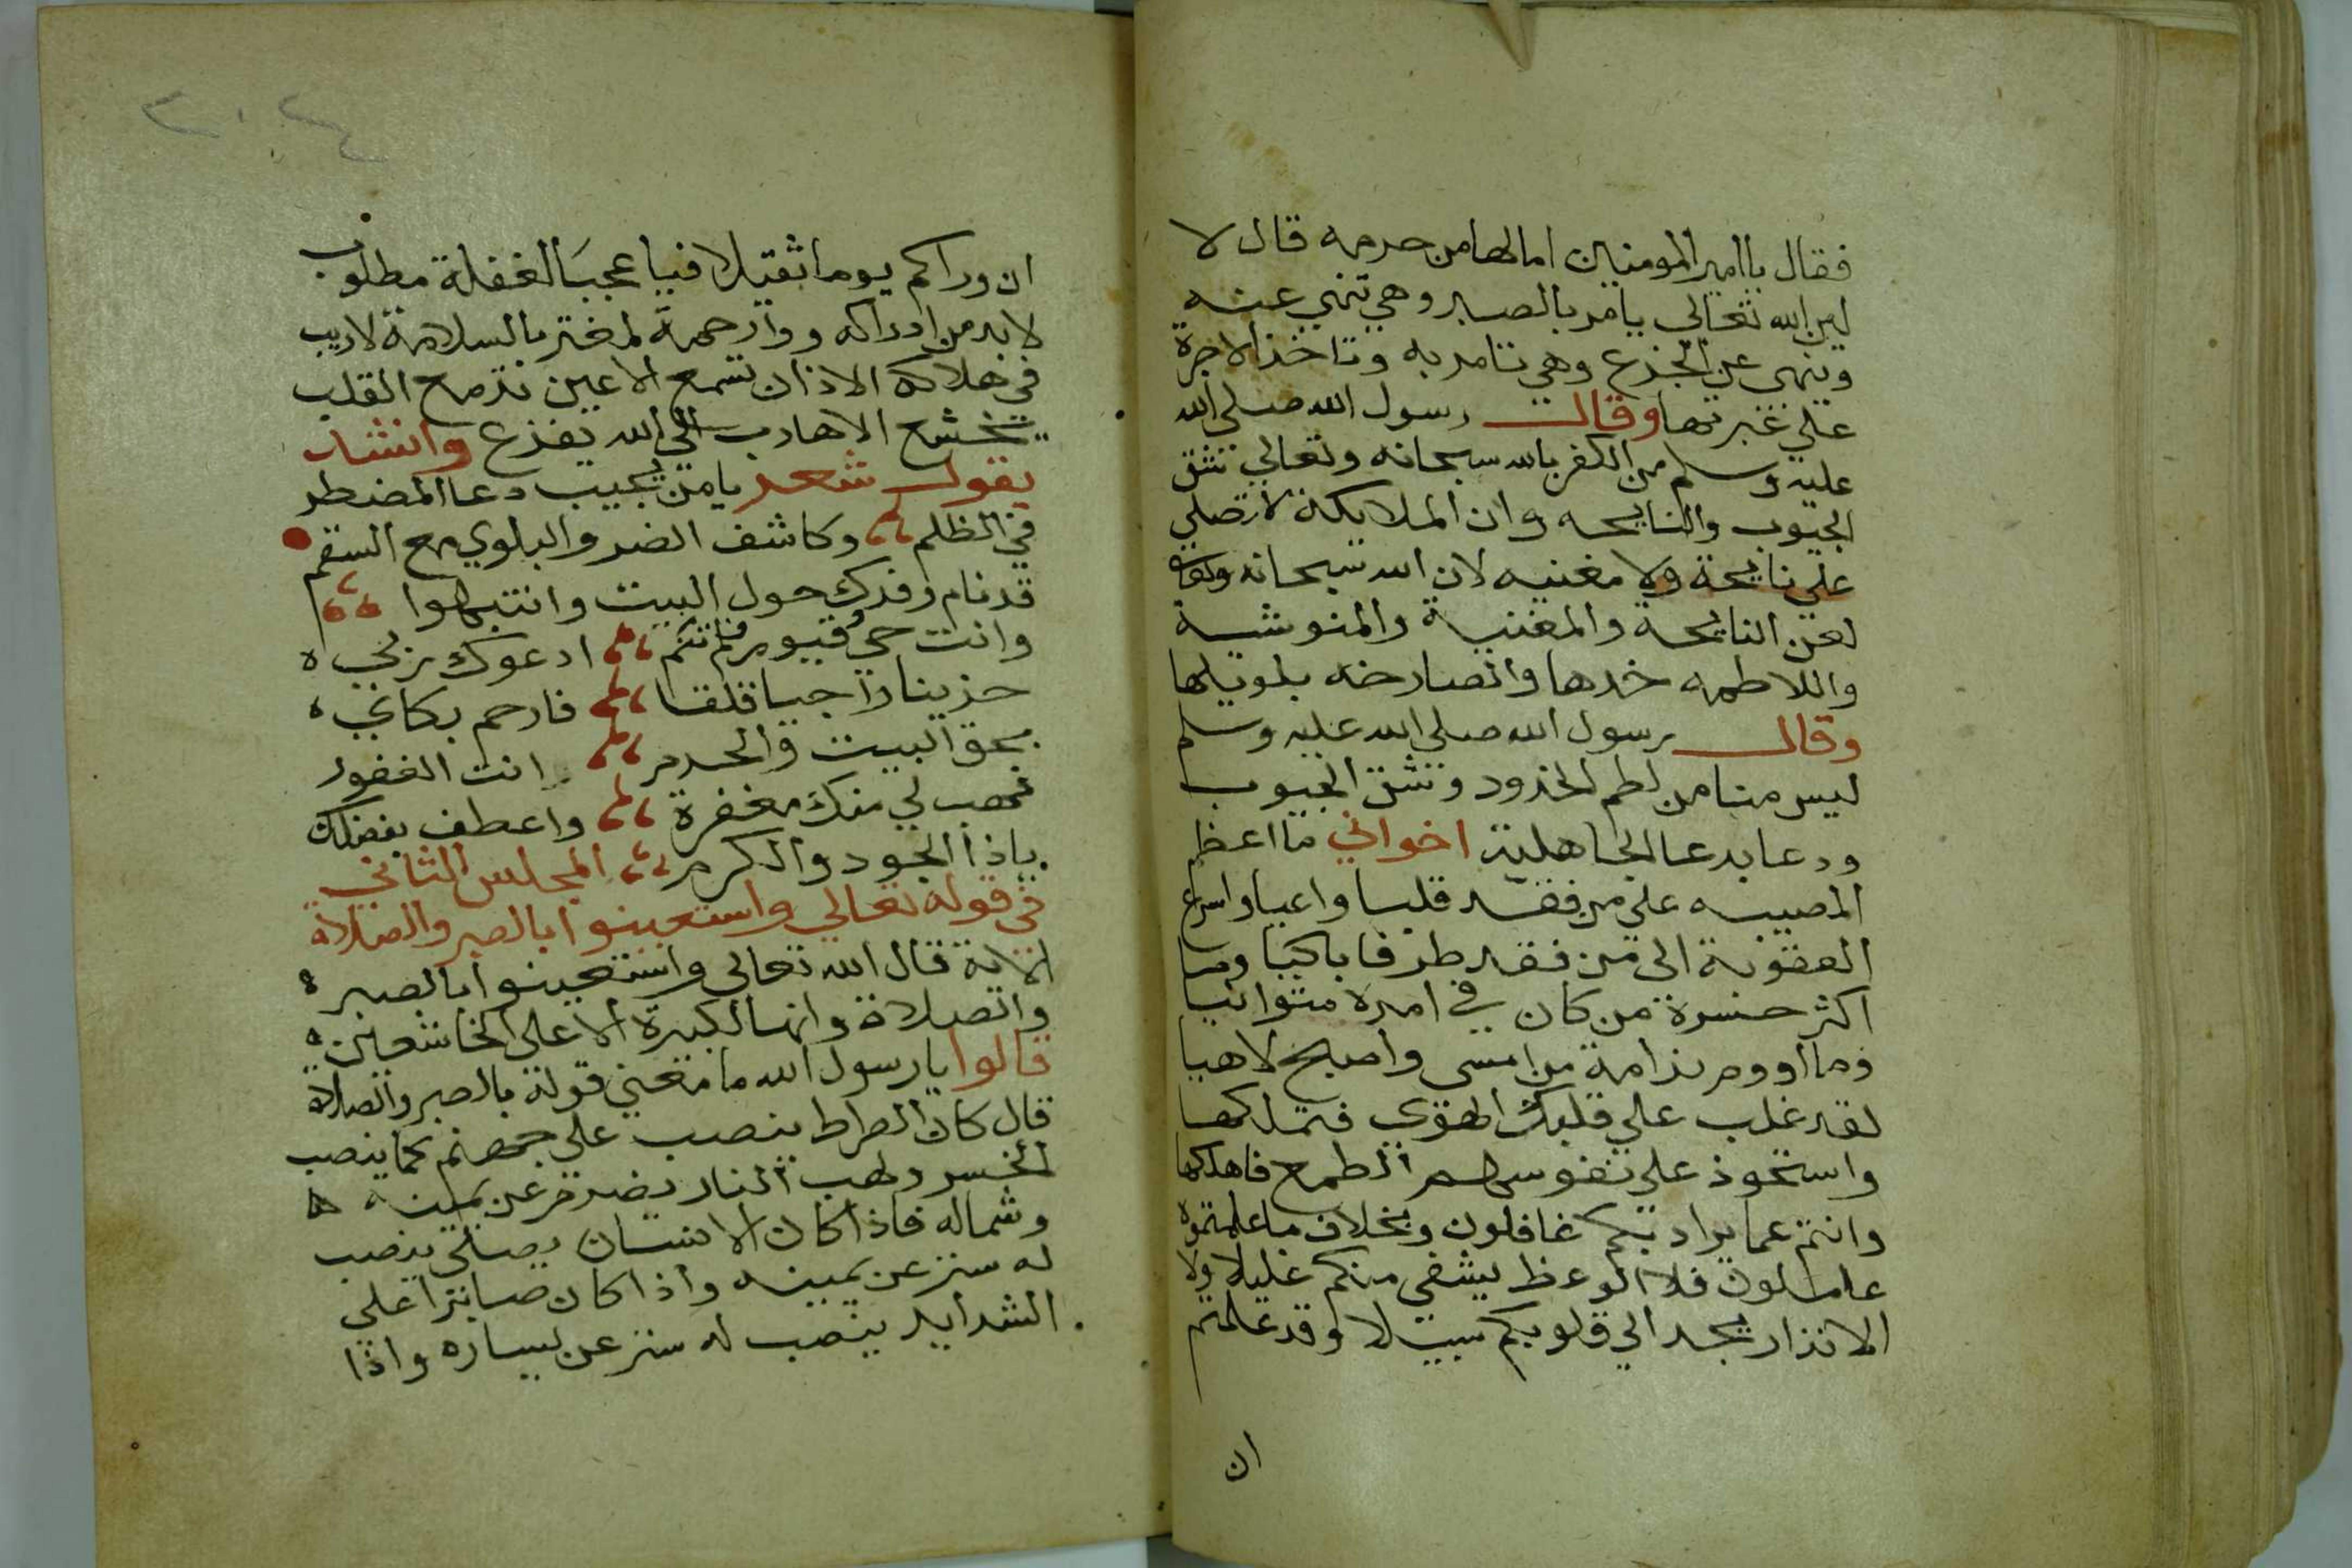 فقال يا امير المومنين اما لها من حرمه قال لا
لان الله تعالى يامر بالصبر وهي تنهي عنه
وينهى عن الجزع وهي تامر به وتاخذ الاجرة
على عبرتها وقال رسول الله صلى الله
عليه وسلم من الكفر بالله سبحانه وتعالى شق
الجيوب والنايحه وان الملايكة لا تصلي
على نايحة ولا مغنيه لان الله سبحانه وتعالى
لعن النايحة والمغنية والمنوشية
واللاطمه خدها والصارخه بلوتيلها
وقال رسول الله صلى الله عليه وسلم
ليس منا من لطم الخدود وشق الجيوب
ودعا بدعا الجاهلية اخواني ما اعظم
المصيبه على من فقد قلبا واعيا واسرع
العقوبة الى من فقد طرفا باكيا وما
اكثر حسرة من كان في امره متوانيا
وما اووم ندامة من امسى واصبح لاهيا
لقد غلب على قلوبكم الهوى فتملكها
واستحوذ على نفوسكم الطمع فاهلكها
وانتم عما يراد بكم غافلون وبخلاف ما علمتموه
عاملون فلا الوعظ يشفى منكم غليلا ولا
الانذار يجد الي قلوبكم سبيلا وقد علمتم
ان
٣٠٤
ان وراكم يوما ثقيلا فيا عجبا لغفلة مطلوب
لابد من ادراكه ووارحمة لمغتر بالسلامة لاريب
في هلاكه الا اذان تسمع الا عين تدمع القلب
يخشع الا هارب الي الله يفزع وانشاب
يقول شعر يا من يجيب دعا المضطر
في الظلم وكاشف الضر والبلوي مع السقم
قد نام وفدك حول البيت وانتبهوا
وانت حي قيوم فلم تنم ادعوك ربي
حزينا راجيا قلقا فارحم بكاي
بحق البيت والحرم انت الغفور
فهب لي منك مغفرة واعطف بفضلك
ياذا الجود والكرم المجلس الثاني
في قوله تعالي واستعينوا بالصبر والصلاة
الاية قال الله تعالى واستعينوا بالصبر
والصلاة وانها لكبيرة الا على الخاشعين
قالوا يا رسول الله ما معني قوله بالصبر والصلاة
قال كان الصراط ينصب على جهنم كما ينصب
الجسر ولهب النار يضرم عن يمينه
وشماله فاذا كان الانسان يصلي ينصب
له ستر عن يمينه واذا كان صابرا على
الشدايد ينصب له ستر عن يساره واذا